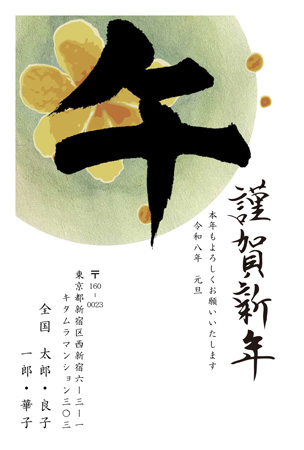 午
謹賀新年
本年もよろしくお願いいたします
令和八年　元旦
〒160-0023
東京都新宿区西新宿六ー三ー一
キタムラマンション三〇三
全国　太郎・良子
一郎・華子